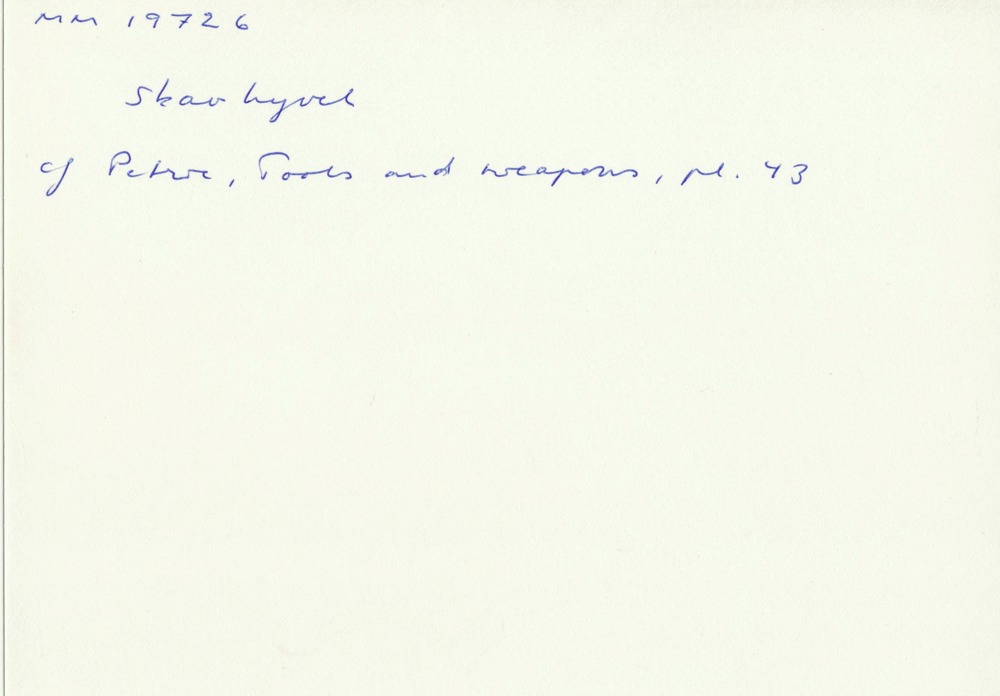 MM 19726
Skavhyvel
cf Petrie, Tools and weapons, pl. 43